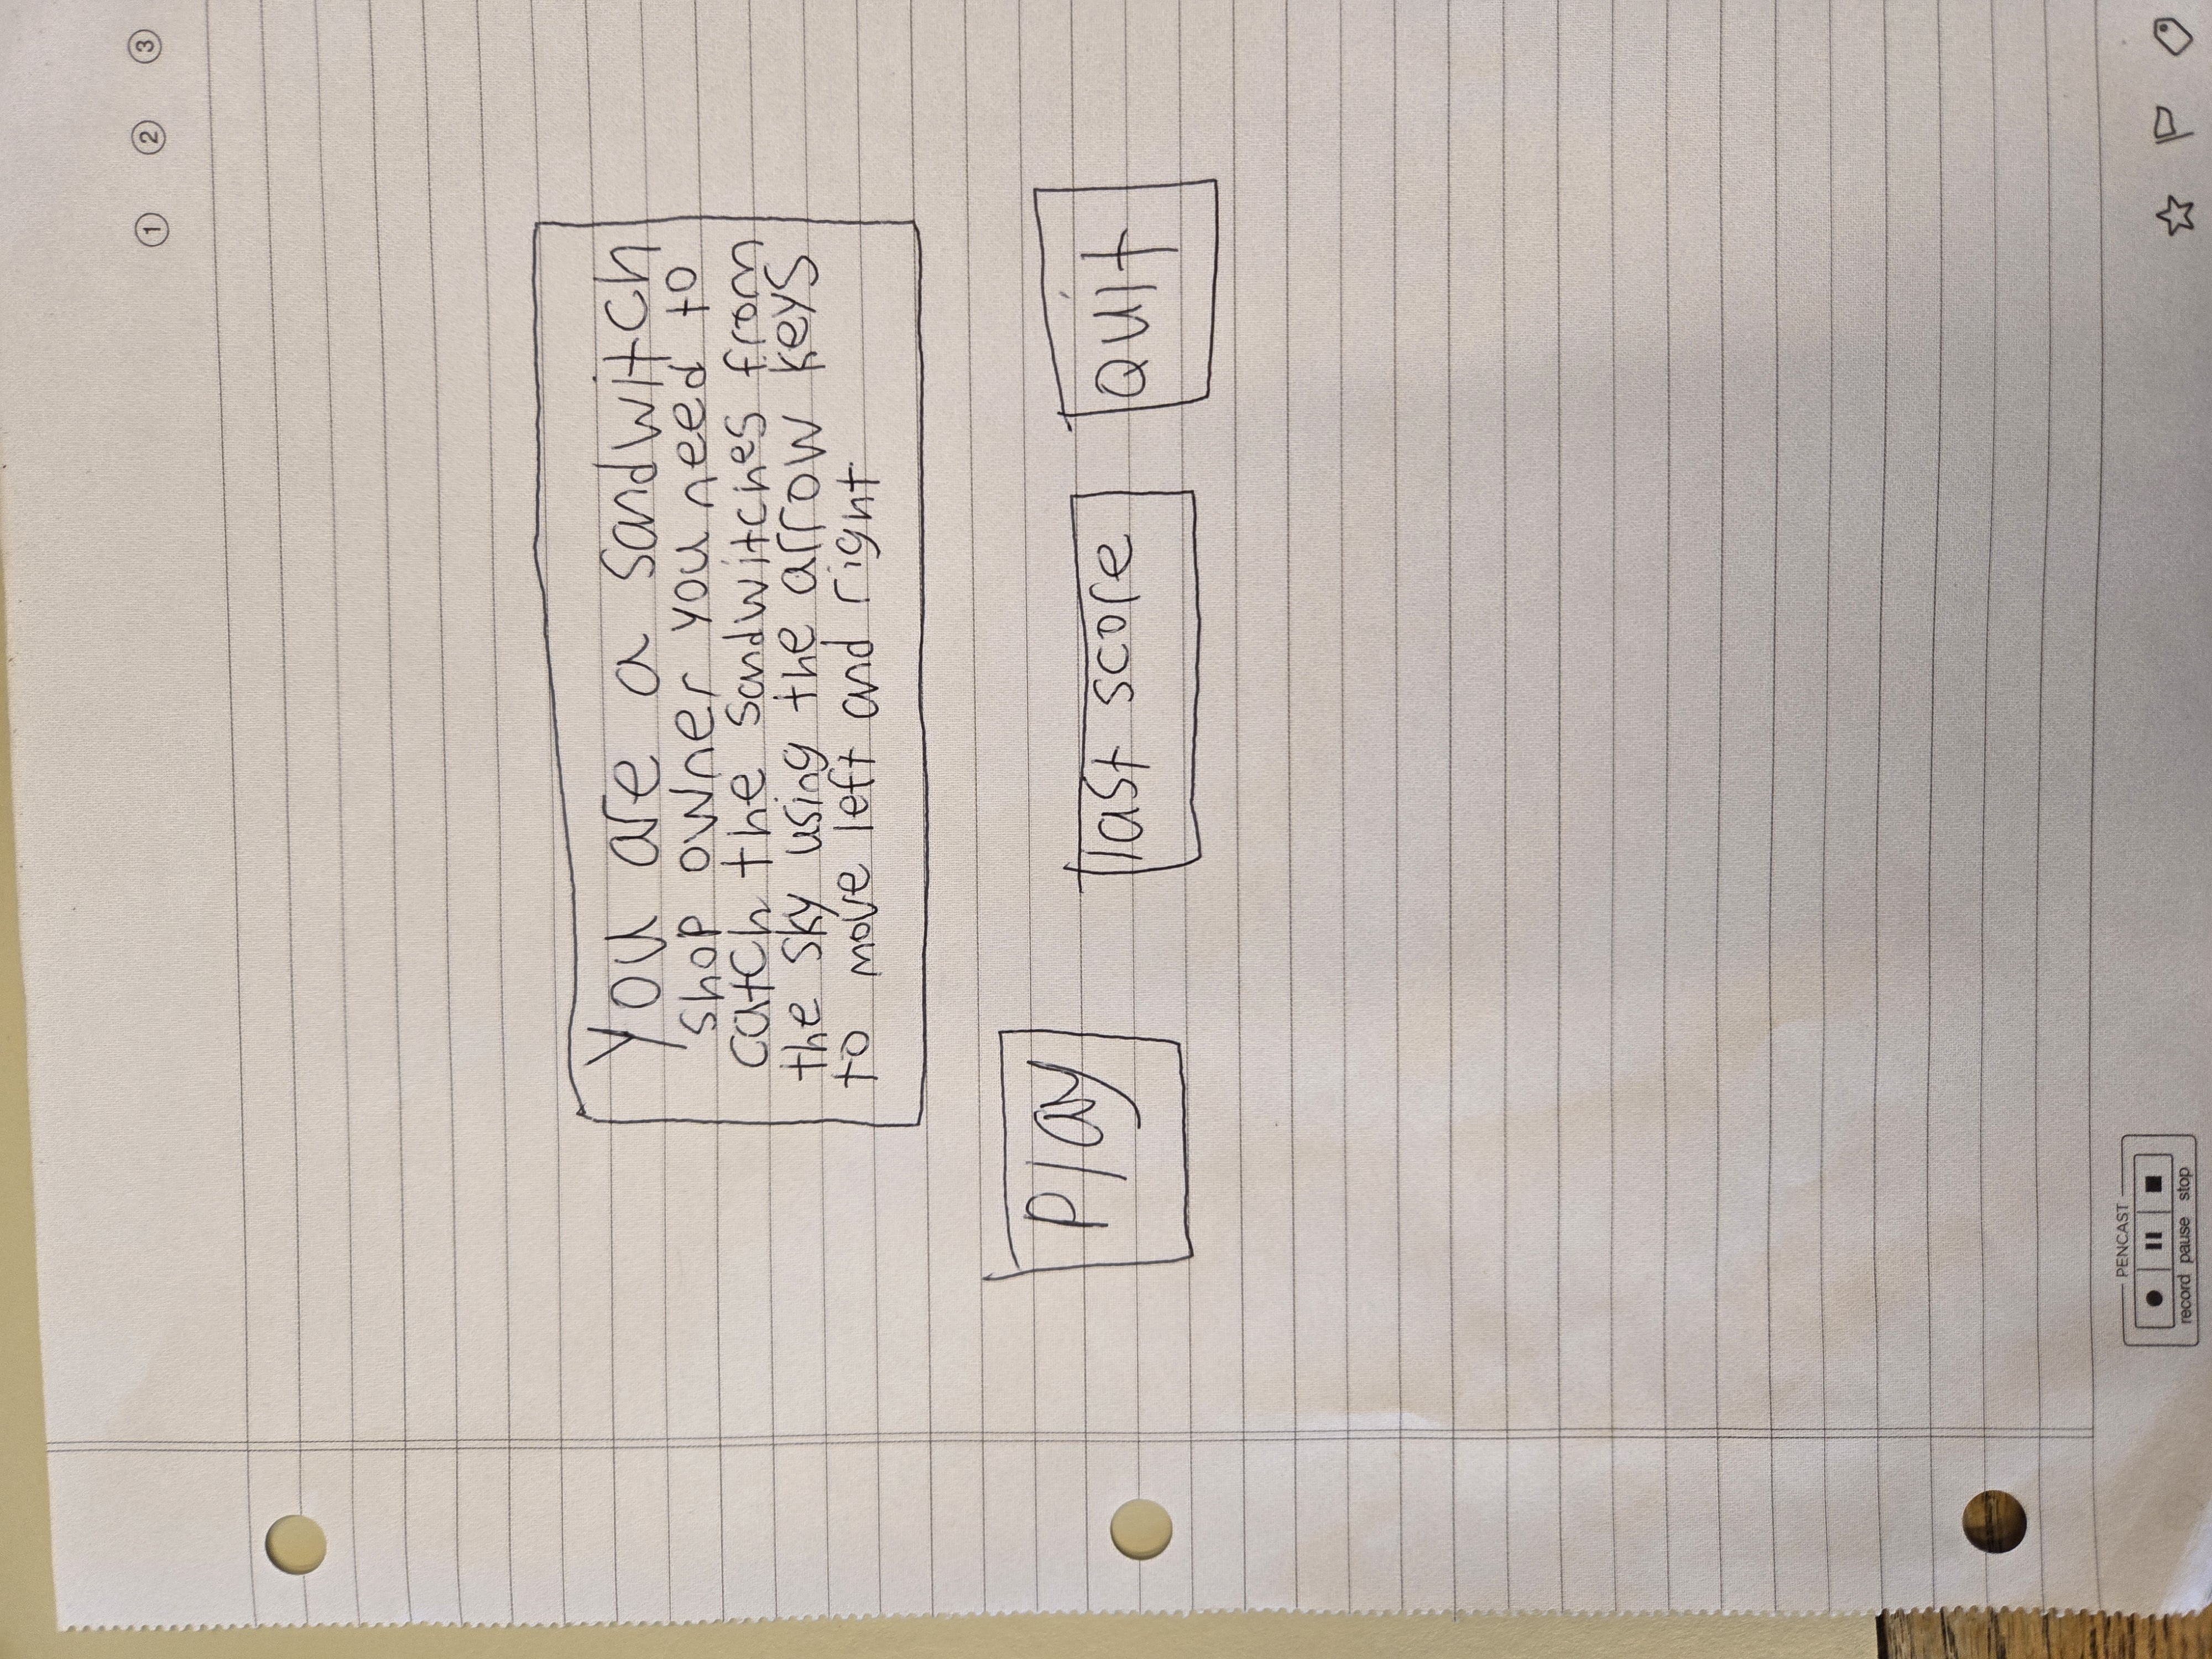 ① ② ③
You are a sandwitch
shop owner you need to
catch the sandwitches from
the sky using the arrow keys
to move left and right
Play
last score
Quit
PENCAST
record pause stop